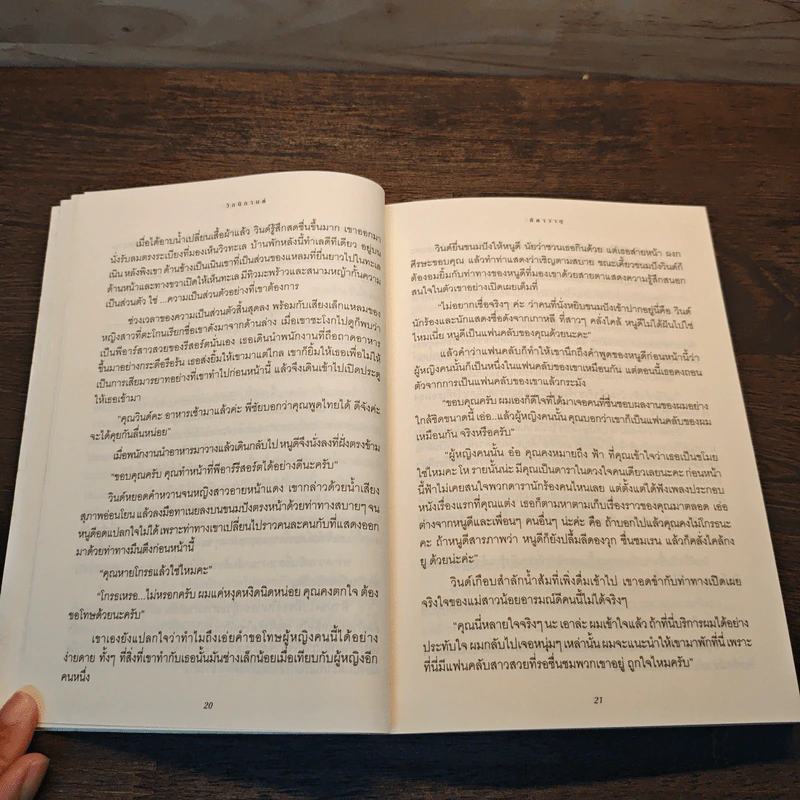 วิกนิกานต์
เมื่อได้อาบน้ำเปลี่ยนเสื้อผ้าแล้ว วินด์รู้สึกสดชื่นขึ้นมาก เขาออกมา
นั่งรับลมตรงระเบียงที่มองเห็นวิวทะเล บ้านพักหลังนี้ทำเลดีทีเดียว อยู่บน
เนิน หลังพิงเขา ด้านข้างเป็นเนินเขาที่เป็นส่วนของแหลมที่ยื่นยาวไปในทะเล
ด้านหน้าและทางขวาเปิดให้เห็นทะเล มีทิวมะพร้าวและสนามหญ้ากั้นความ
เป็นส่วนตัว ใช่ ...ความเป็นส่วนตัวอย่างที่เขาต้องการ
ช่วงเวลาของความเป็นส่วนตัวสิ้นสุดลง พร้อมกับเสียงเล็กแหลมของ
หญิงสาวที่ตะโกนเรียกชื่อเขาดังมาจากด้านล่าง เมื่อเขาชะโงกไปดูก็พบว่า
เป็นพีอาร์สาวสวยของรีสอร์ตนั่นเอง เธอเดินนำพนักงานที่ถือถาดอาหาร
ขึ้นมาอย่างกระตือรือร้น เธอส่งยิ้มให้เขามาแต่ไกล เขาก็ยิ้มให้เธอเพื่อไม่ให้
เป็นการเสียมารยาทอย่างที่เขาทำไปก่อนหน้านี้ แล้วจึงเดินเข้าไปเปิดประตู
ให้เธอเข้ามา
“คุณวินด์คะ อาหารเช้ามาแล้วค่ะ พี่ชัยบอกว่าคุณพูดไทยได้ ดีจังค่ะ
จะได้คุยกันลื่นหน่อย”
เมื่อพนักงานนำอาหารมาวางแล้วเดินกลับไป หนูดีจึงนั่งลงที่ฝั่งตรงข้าม
“ขอบคุณครับ คุณทำหน้าที่พีอาร์รีสอร์ตได้อย่างดีนะครับ”
วินด์หยอดคำหวานจนหญิงสาวอายหน้าแดง เขากล่าวด้วยน้ำเสียง
สุภาพอ่อนโยน แล้วลงมือทาเนยลงบนขนมปังตรงหน้าด้วยท่าทางสบายๆ จน
หนูดีอดแปลกใจไม่ได้ เพราะท่าทางเขาเปลี่ยนไปราวคนละคนกับที่แสดงออก
มาด้วยท่าทางมึนตึงก่อนหน้านี้
“คุณหายโกรธแล้วใช่ไหมคะ”
“โกรธเหรอ...ไม่หรอกครับ ผมแค่หงุดหงิดนิดหน่อย คุณคงตกใจ ต้อง
ขอโทษด้วยนะครับ”
เขาเองยังแปลกใจว่าทำไมถึงเอ่ยคำขอโทษผู้หญิงคนนี้ได้อย่าง
ง่ายดาย ทั้งๆ ที่สิ่งที่เขาทำกับเธอนั้นมันช่างเล็กน้อยเมื่อเทียบกับผู้หญิงอีก
คนหนึ่ง
20
วินด์ยื่นขนมปังให้หนูดี นัยว่าชวนเธอกินด้วย แต่เธอส่ายหน้า ผงก
ศีรษะขอบคุณ แล้วทำท่าแสดงว่าเชิญตามสบาย ขณะเคี้ยวขนมปังวินด์ก็
ต้องอมยิ้มกับท่าทางของหนูดีที่มองเขาด้วยสายตาแสดงความรู้สึกสนอก
สนใจในตัวเขาอย่างเปิดเผยเต็มที่
“ไม่อยากเชื่อจริงๆ ค่ะ ว่าคนที่นั่งหยิบขนมปังเข้าปากอยู่นี่คือ วินด์
นักร้องและนักแสดงชื่อดังจากเกาหลี ที่สาวๆ คลั่งไคล้ หนูดีไม่ได้ฝันไปใช่
ไหมเนี่ย หนูดีเป็นแฟนคลับของคุณด้วยนะคะ”
แล้วคำว่าแฟนคลับก็ทำให้เขานึกถึงคำพูดของหนูดีก่อนหน้านี้ว่า
ผู้หญิงคนนั้นก็เป็นหนึ่งในแฟนคลับของเขาเหมือนกัน แต่ตอนนี้เธอคงถอน
ตัวจากการเป็นแฟนคลับของเขาแล้วกระมัง
“ขอบคุณครับ ผมเองก็ดีใจที่ได้มาเจอคนที่ชื่นชอบผลงานของผมอย่าง
ใกล้ชิดขนาดนี้ เอ่อ...แล้วผู้หญิงคนนั้น คุณบอกว่าเขาก็เป็นแฟนคลับของผม
เหมือนกัน จริงหรือครับ”
“ผู้หญิงคนนั้น อ๋อ คุณคงหมายถึง ฟ้า ที่คุณเข้าใจว่าเธอเป็นขโมย
ใช่ไหมคะ โห รายนั้นน่ะ มีคุณเป็นดาราในดวงใจคนเดียวเลยนะคะ ก่อนหน้า
นี้ฟ้าไม่เคยสนใจพวกดารานักร้องคนไหนเลย แต่ตั้งแต่ได้ฟังเพลงประกอบ
หนังเรื่องแรกที่คุณแต่ง เธอก็ตามหาตามเก็บเรื่องราวของคุณมาตลอด เอ่อ
ต่างจากหนูดีและเพื่อนๆ คนอื่นๆ น่ะค่ะ คือ ถ้าบอกไปแล้วคุณคงไม่โกรธนะ
คะ ถ้าหนูดีสารภาพว่า หนูดีก็ยังปลื้มลีดองวุก ซื่นชมเรน แล้วก็คลั่งไคล้กง
ยู ด้วยน่ะค่ะ”
วินด์เกือบสำลักน้ำส้มที่เพิ่งดื่มเข้าไป เขาอดขำกับท่าทางเปิดเผย
จริงใจของแม่สาวน้อยอารมณ์ดีคนนี้ไม่ได้จริงๆ
“คุณนี่หลายใจจริงๆ นะ เอาล่ะ ผมเข้าใจแล้ว ถ้าที่นี่บริการผมได้อย่าง
ประทับใจ ผมกลับไปเจอหนุ่มๆ เหล่านั้น ผมจะแนะนำให้เขามาพักที่นี่ เพราะ
ที่นี่มีแฟนคลับสาวสวยที่รอชื่นชมพวกเขาอยู่ ถูกใจไหมครับ”
21